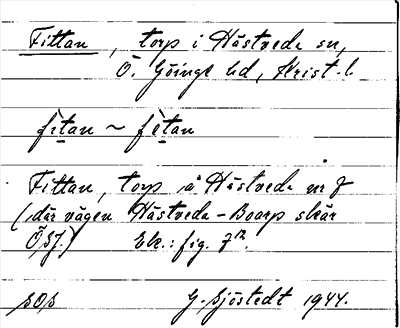 Fittan, torp i Hästveda sn,
Ö. Göinge hd, Krist. l.
fìtan ~ fètan
Fittan, torp å Hästveda nr 7
(där vägen Hästveda - Boarp skär
ÖSJ.) Ek.: fig. 7¹².
SOS G. Sjöstedt 1944.